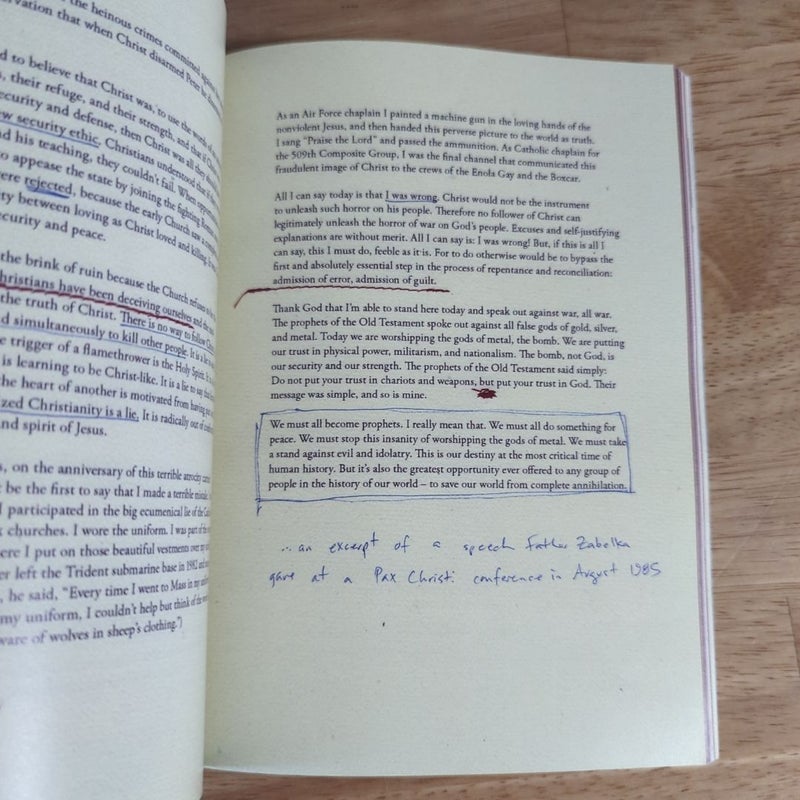 the heinous crimes committed against
rvation that when Christ disarmed Peter he disarmed
d to believe that Christ was, to use the words of
, their refuge, and their strength, and that if Christ
ecurity and defense, then Christ was all they
ew security ethic. Christians understood that if they
nd his teaching, they couldn't fail. When
o appease the state by joining the fighting Roman
ere rejected, because the early Church saw a
ity between loving as Christ loved and killing.
curity and peace.
the brink of ruin because the Church refuses to
hristians have been deceiving ourselves and the
the truth of Christ. There is no way to follow
d simultaneously to kill other people. It is a lie
e trigger of a flamethrower is the Holy Spirit. It is
is learning to be Christ-like. It is a lie to say that
he heart of another is motivated from having put
zed Christianity is a lie. It is radically out of
nd spirit of Jesus.
s, on the anniversary of this terrible atrocity
t be the first to say that I made a terrible mistake.
I participated in the big ecumenical lie of the
x churches. I wore the uniform. I was part of the
ere I put on those beautiful vestments over my
er left the Trident submarine base in 1982 and
, he said, "Every time I went to Mass in my
my uniform, I couldn't help but think of the
ware of wolves in sheep's clothing.")
As an Air Force chaplain I painted a machine gun in the loving hands of the
nonviolent Jesus, and then handed this perverse picture to the world as truth.
I sang "Praise the Lord" and passed the ammunition. As Catholic chaplain for
the 509th Composite Group, I was the final channel that communicated this
fraudulent image of Christ to the crews of the Enola Gay and the Boxcar.
All I can say today is that I was wrong. Christ would not be the instrument
to unleash such horror on his people. Therefore no follower of Christ can
legitimately unleash the horror of war on God's people. Excuses and self-justifying
explanations are without merit. All I can say is: I was wrong! But, if this is all I
can say, this I must do, feeble as it is. For to do otherwise would be to bypass the
first and absolutely essential step in the process of repentance and reconciliation:
admission of error, admission of guilt.
Thank God that I'm able to stand here today and speak out against war, all war.
The prophets of the Old Testament spoke out against all false gods of gold, silver,
and metal. Today we are worshipping the gods of metal, the bomb. We are putting
our trust in physical power, militarism, and nationalism. The bomb, not God, is
our security and our strength. The prophets of the Old Testament said simply:
Do not put your trust in chariots and weapons, but put your trust in God. Their
message was simple, and so is mine.
We must all become prophets. I really mean that. We must all do something for
peace. We must stop this insanity of worshipping the gods of metal. We must take
a stand against evil and idolatry. This is our destiny at the most critical time of
human history. But it's also the greatest opportunity ever offered to any group of
people in the history of our world – to save our world from complete annihilation.
...an excerpt of a speech Father Zabelka
gave at a Pax Christi conference in August 1985